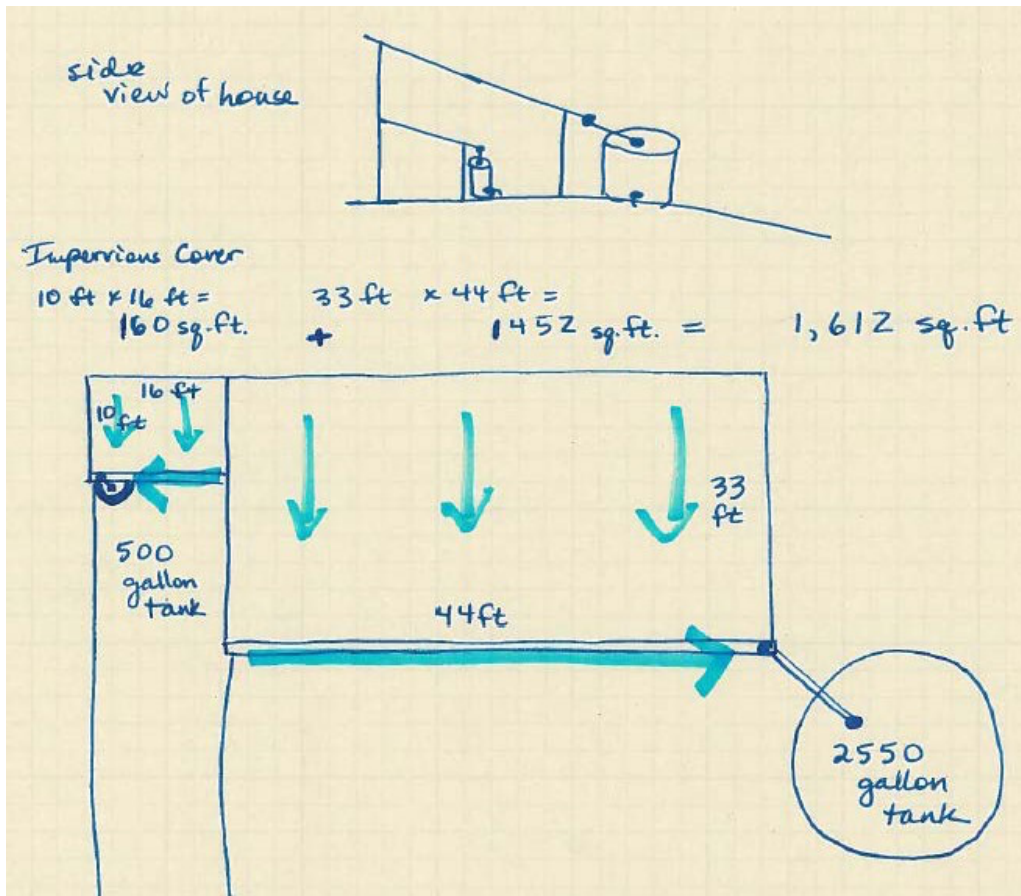 side
view of house
Impervious Cover
10 ft x 16 ft =
160 sq.ft.
+
33 ft x 44 ft =
1452 sq.ft. =
1,612 sq.ft
16 ft
10
ft
33
ft
500
gallon
tank
44ft
2550
gallon
tank